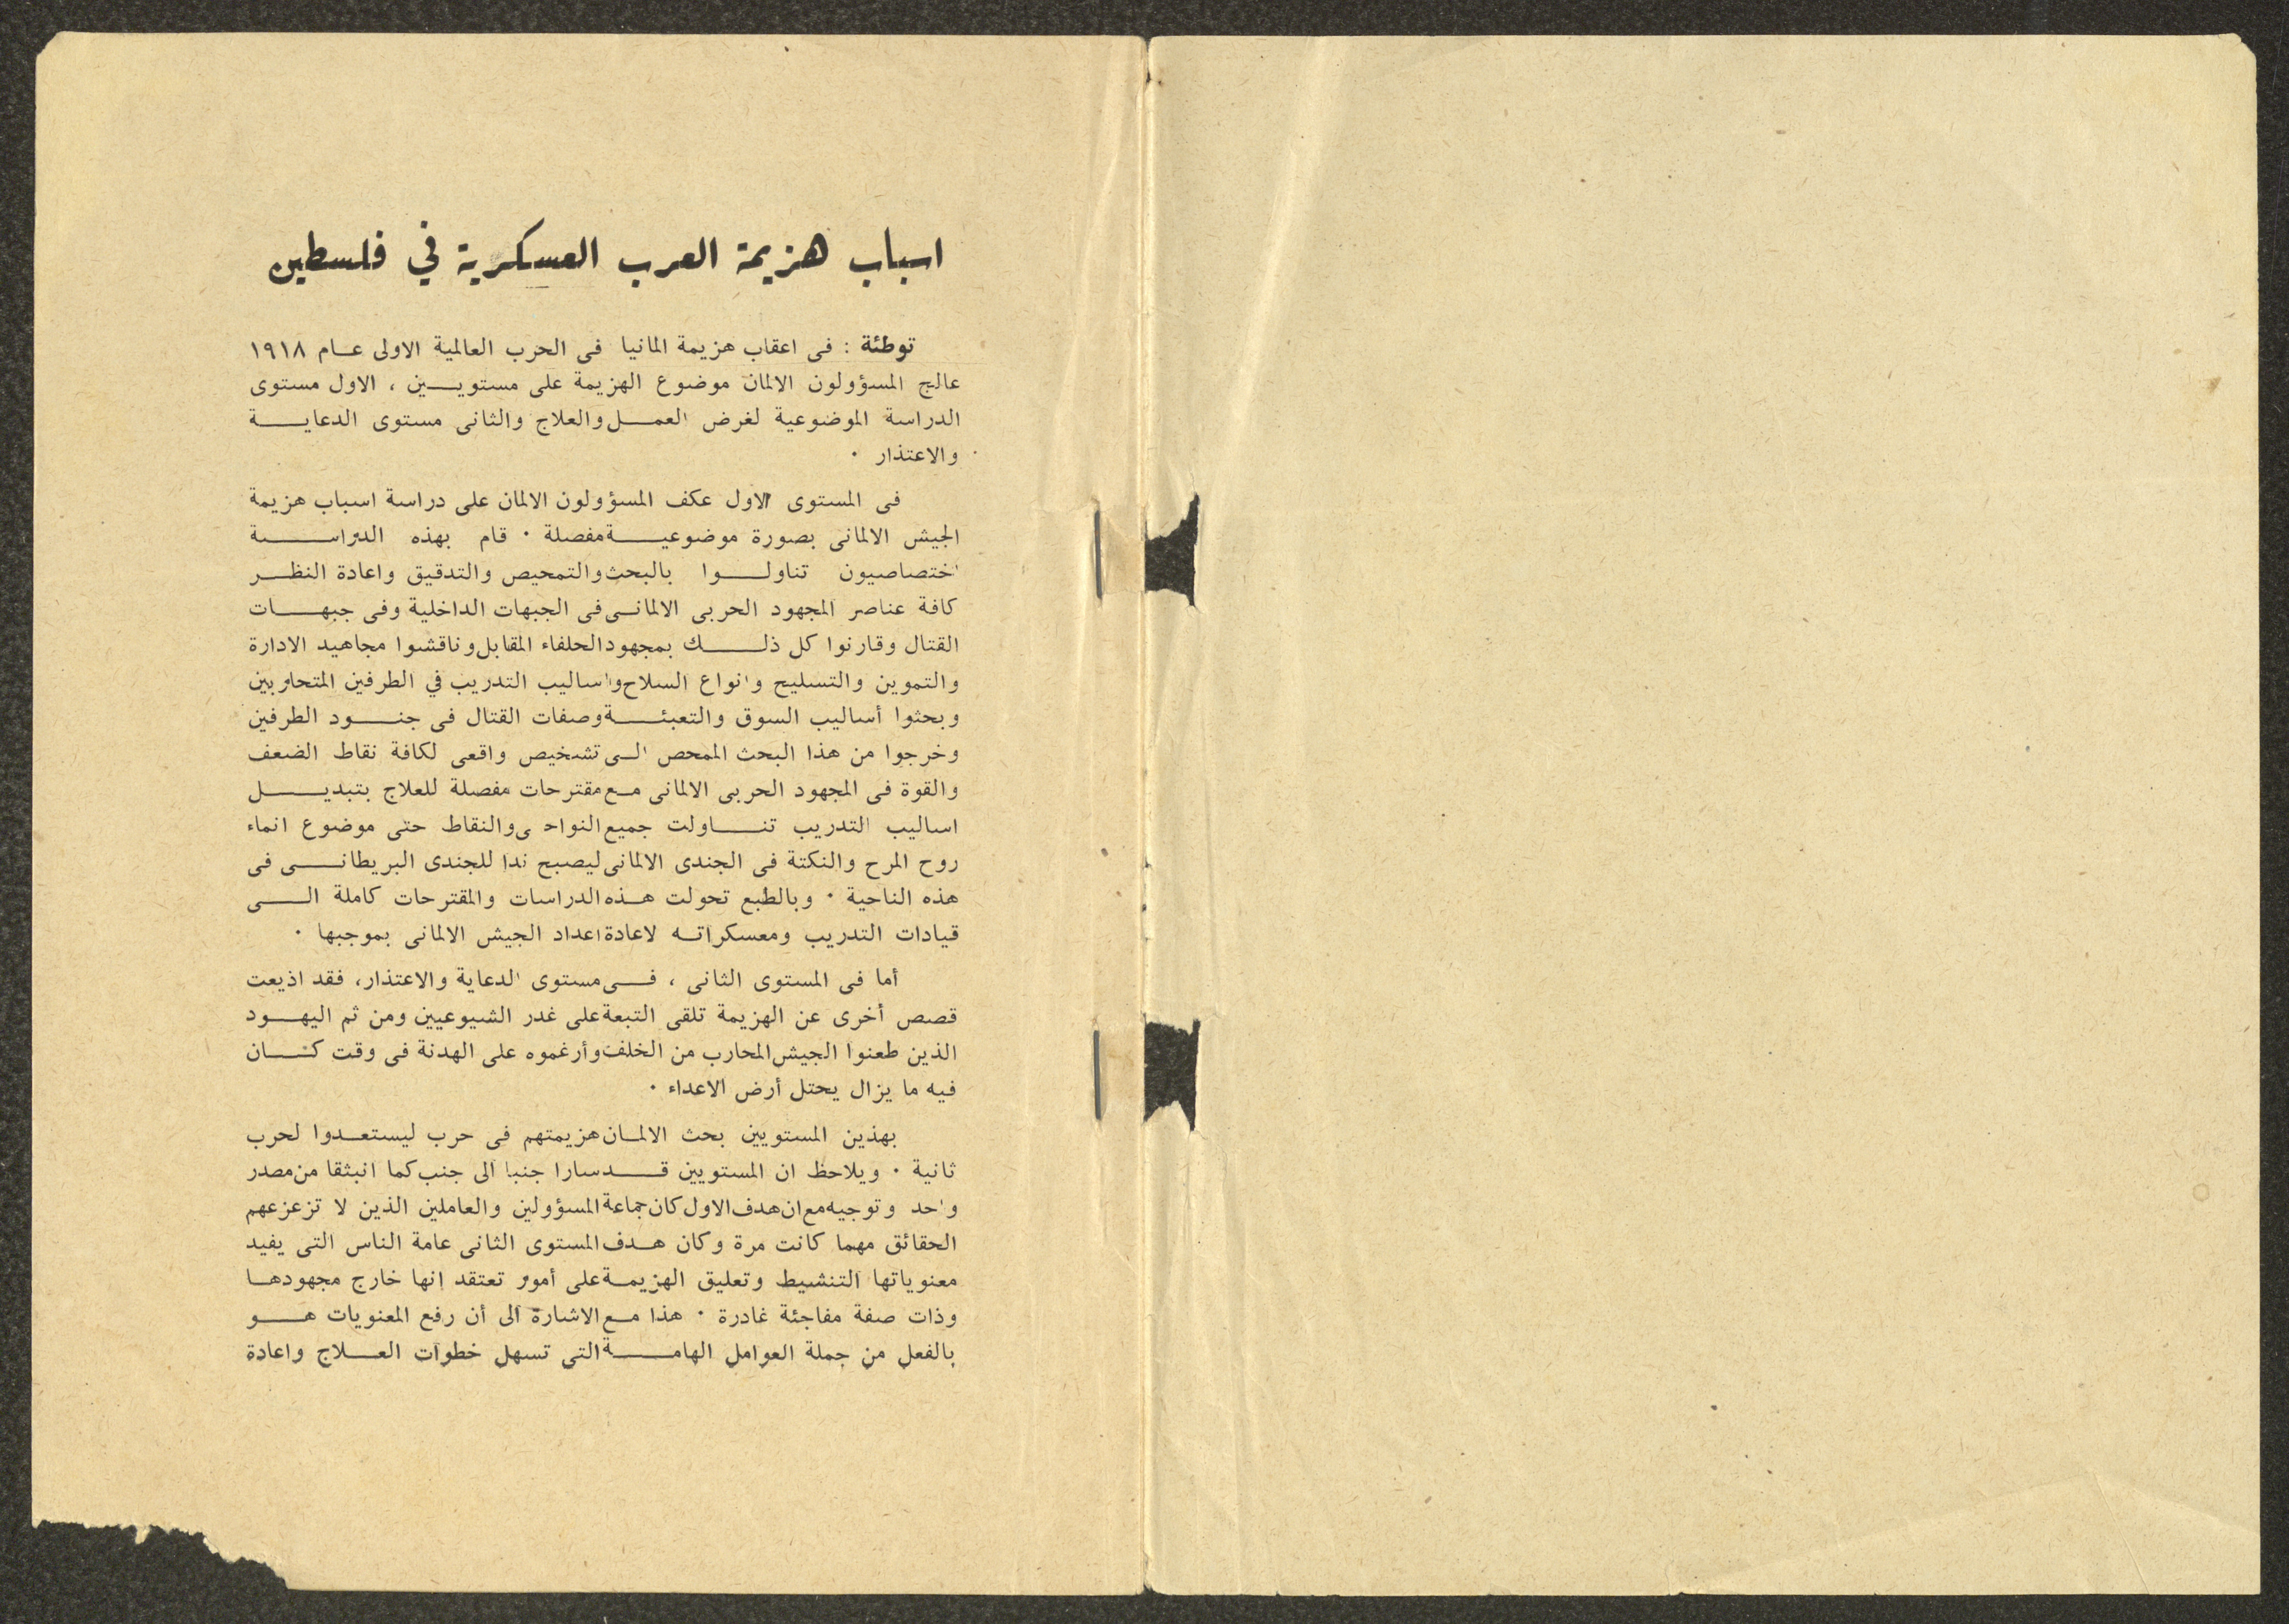 اسباب هزيمة العرب العسكرية في فلسطين
توطئة : فى اعقاب هزيمة المانيا فى الحرب العالمية الاولى عام ١٩١٨
عالج المسؤولون الالمان موضوع الهزيمة على مستويين ، الاول مستوى
الدراسة الموضوعية لغرض العمل والعلاج والثانى مستوى الدعاية
والاعتذار ٠
فى المستوى الاول عكف المسؤولون الالمان على دراسة اسباب هزيمة
الجيش الالمانى بصورة موضوعية مفصلة ٠ قام بهذه الدراسة
اختصاصيون تناولوا بالبحث والتمحيص والتدقيق واعادة النظر
كافة عناصر المجهود الحربى الالمانى فى الجبهات الداخلية وفى جبهات
القتال وقارنوا كل ذلك بمجهود الحلفاء المقابل وناقشوا مجاهيد الادارة
والتموين والتسليح وانواع السلاح واساليب التدريب في الطرفين المتحاربين
وبحثوا أساليب السوق والتعبئة وصفات القتال فى جنود الطرفين
وخرجوا من هذا البحث الممحص الى تشخيص واقعى لكافة نقاط الضعف
والقوة فى المجهود الحربى الالمانى مع مقترحات مفصلة للعلاج بتبديل
اساليب التدريب تناولت جميع النواحى والنقاط حتى موضوع انماء
روح المرح والنكتة فى الجندى الالمانى ليصبح ندا للجندى البريطانى فى
هذه الناحية ٠ وبالطبع تحولت هذه الدراسات والمقترحات كاملة الى
قيادات التدريب ومعسكراته لاعادة اعداد الجيش الالمانى بموجبها ٠
أما فى المستوى الثانى ، فى مستوى الدعاية والاعتذار، فقد اذيعت
قصص أخرى عن الهزيمة تلقى التبعة على غدر الشيوعيين ومن ثم اليهود
الذين طعنوا الجيش المحارب من الخلف وأرغموه على الهدنة فى وقت كان
فيه ما يزال يحتل أرض الاعداء ٠
بهذين المستويين بحث الالمان هزيمتهم فى حرب ليستعدوا لحرب
ثانية ٠ ويلاحظ ان المستويين قد سارا جنبا الى جنب كما انبثقا من مصدر
واحد وتوجيه مع ان هدف الاول كان جماعة المسؤولين والعاملين الذين لا تزعزعهم
الحقائق مهما كانت مرة وكان هدف المستوى الثانى عامة الناس التى يفيد
معنوياتها التنشيط وتعليق الهزيمة على أمور تعتقد انها خارج مجهودها
وذات صفة مفاجئة غادرة ٠ هذا مع الاشارة الى أن رفع المعنويات هو
بالفعل من جملة العوامل الهامة التى تسهل خطوات العلاج واعادة